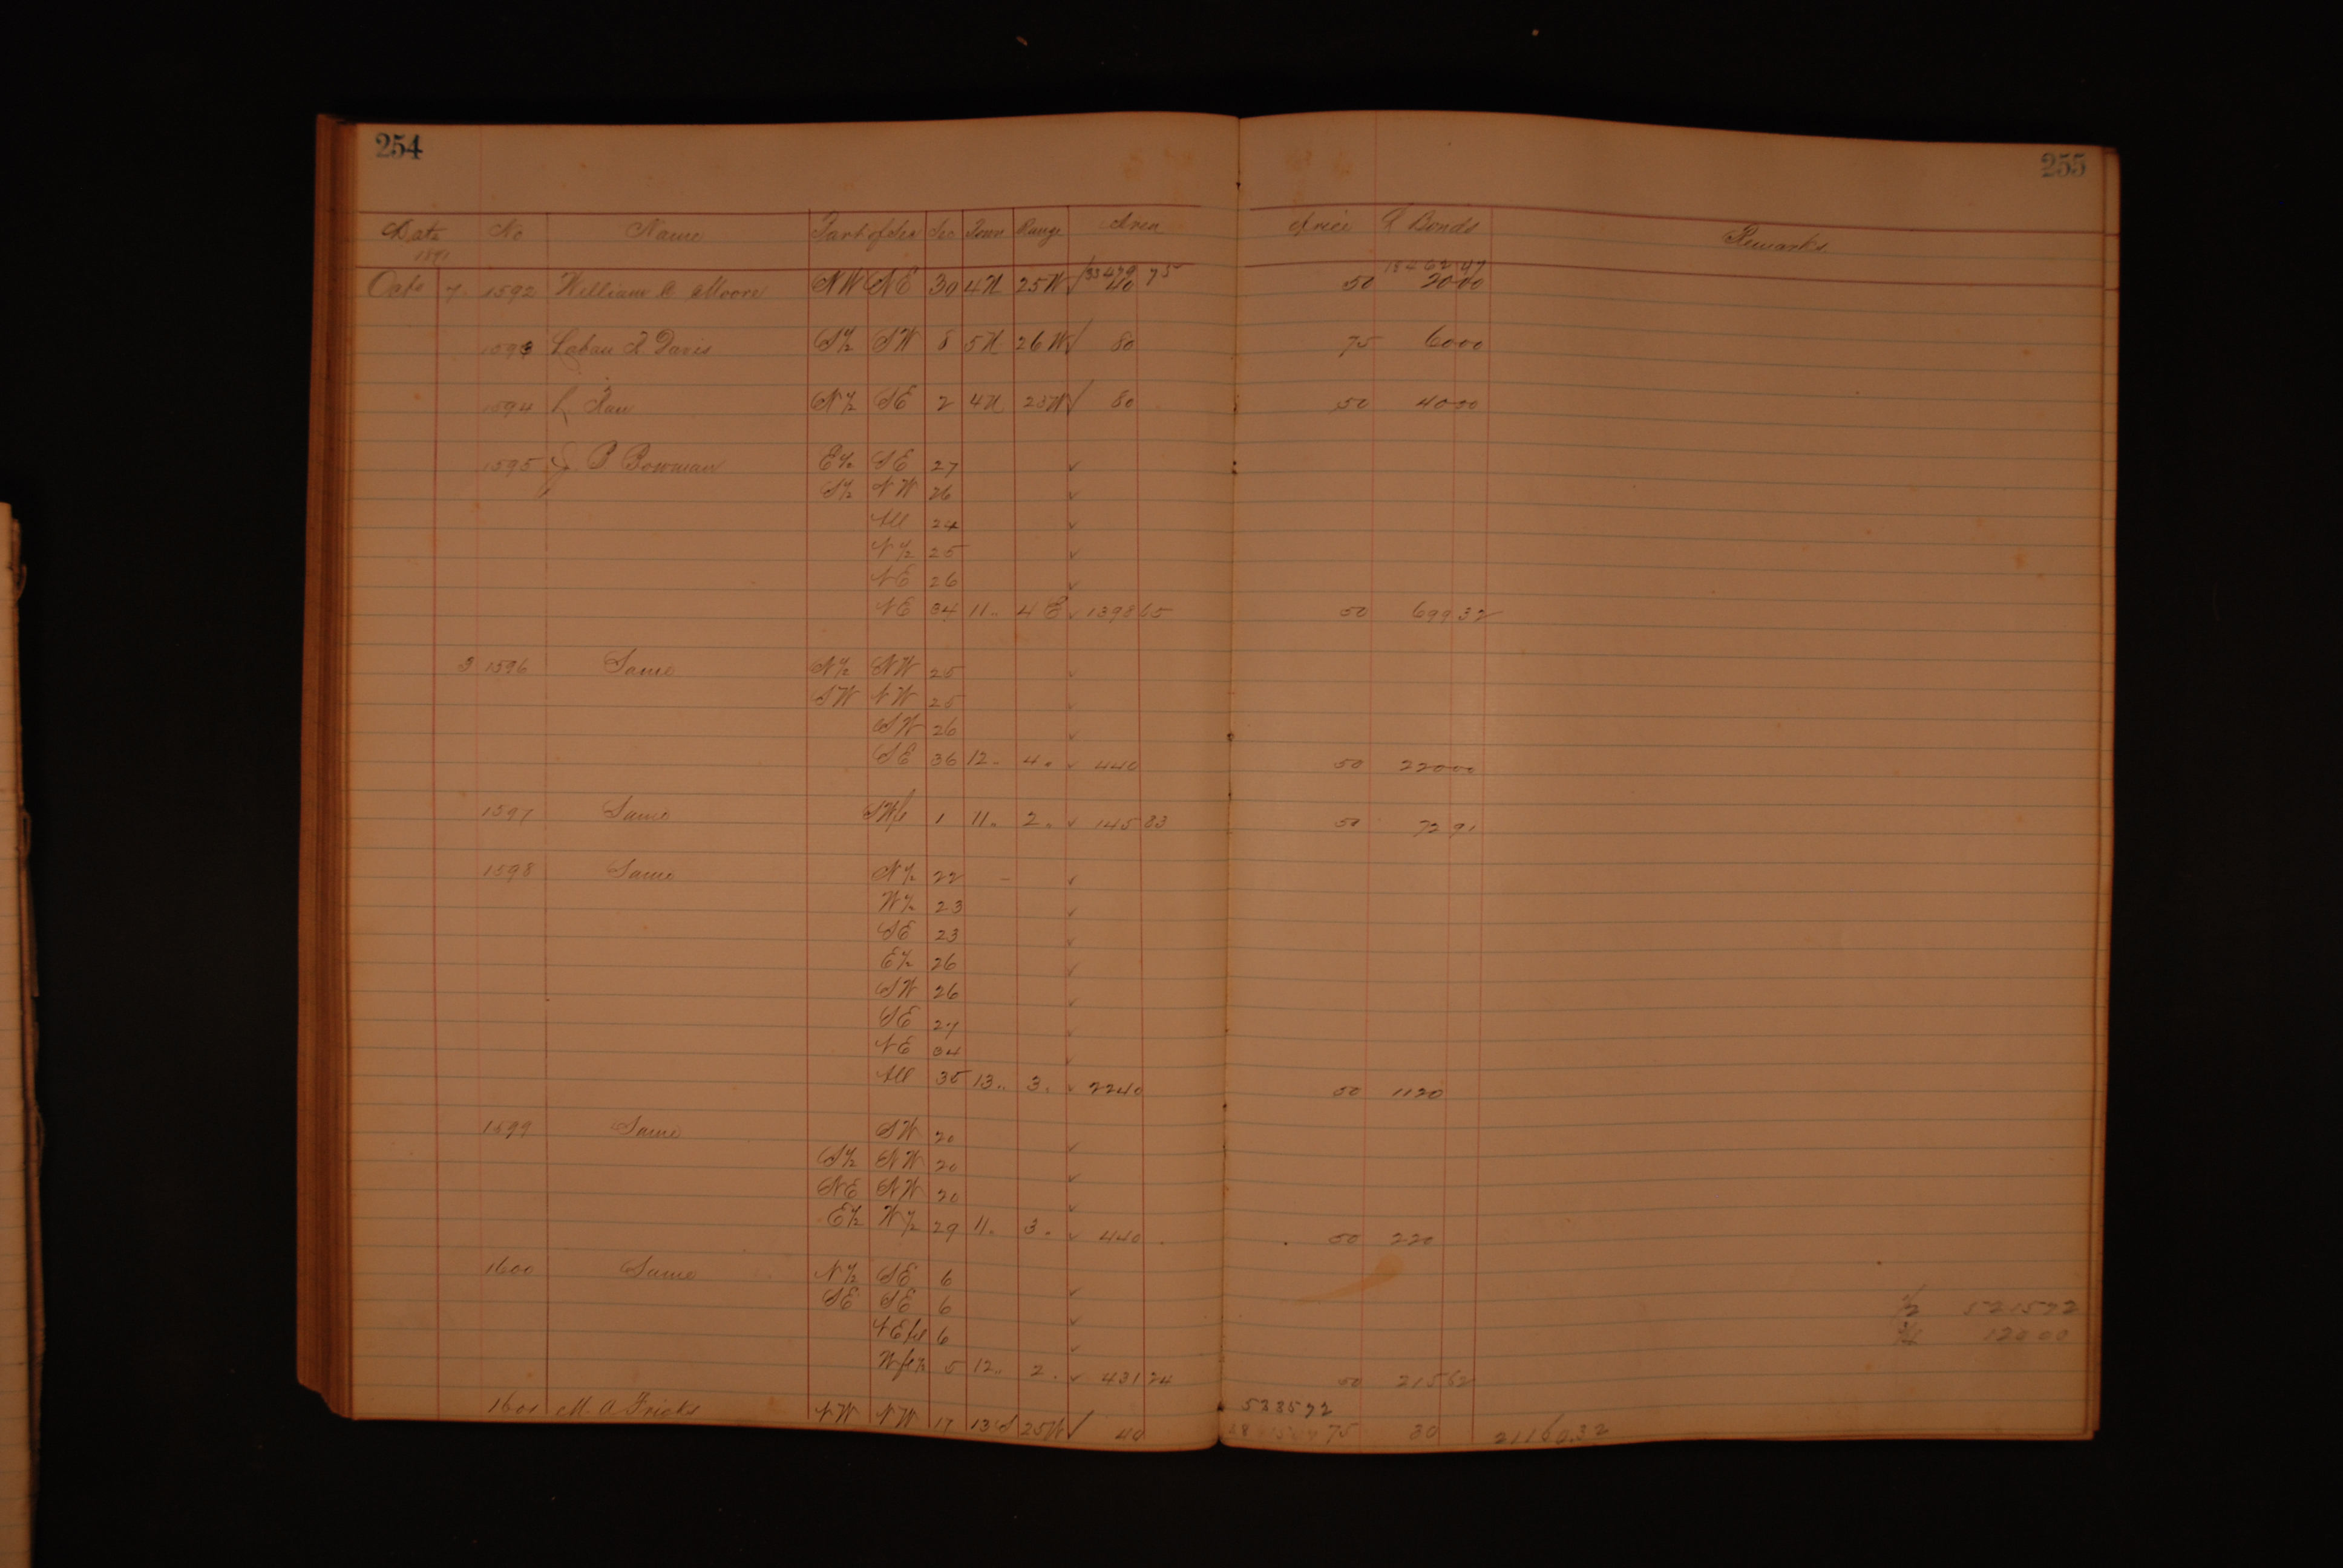 254
255
Date No Name Part of Sec Sec Town Range Area Price $ Bonds Remarks
33479 75 18462 47
7 1592 William Moore NW NE 30 4N 25W 40 50 2000
1593 Davis S½ SW 8 5N 26W 80 75 6000
1594 N½ SE 2 4N 80 50 4000
1595 J. P Bowman E½ SE 27
S½ NW 26
All 24
N½ 25
NE 26
NE 34 11 " 4 E 1398 65 50 699 32
3 1596 Same N½ NW 25
SW NW 25
SW 26
SE 36 12 " 4 " 440 50 220 00
1597 Same SWfl 1 11 " 2 " 145 83 50 72 91
1598 Same N½ 22
W½ 23
SE 23
E½ 26
SW 26
SE 27
NE 34
All 35 13 " 3 " 2240 50 1120
1599 Same SW 20
S½ NW 20
NE NW 20
E½ W½ 29 11 " 3 " 440 50 220
1600 Same N½ SE 6
SE SE 6
NEfl 6
Wfl½ 5 12 " 2 " 431 24 50 215 62
½ 521572
¾ 12000
533572
1601 M. A Fricks NW NW 17 13S 25W 40 75 30 21160.32